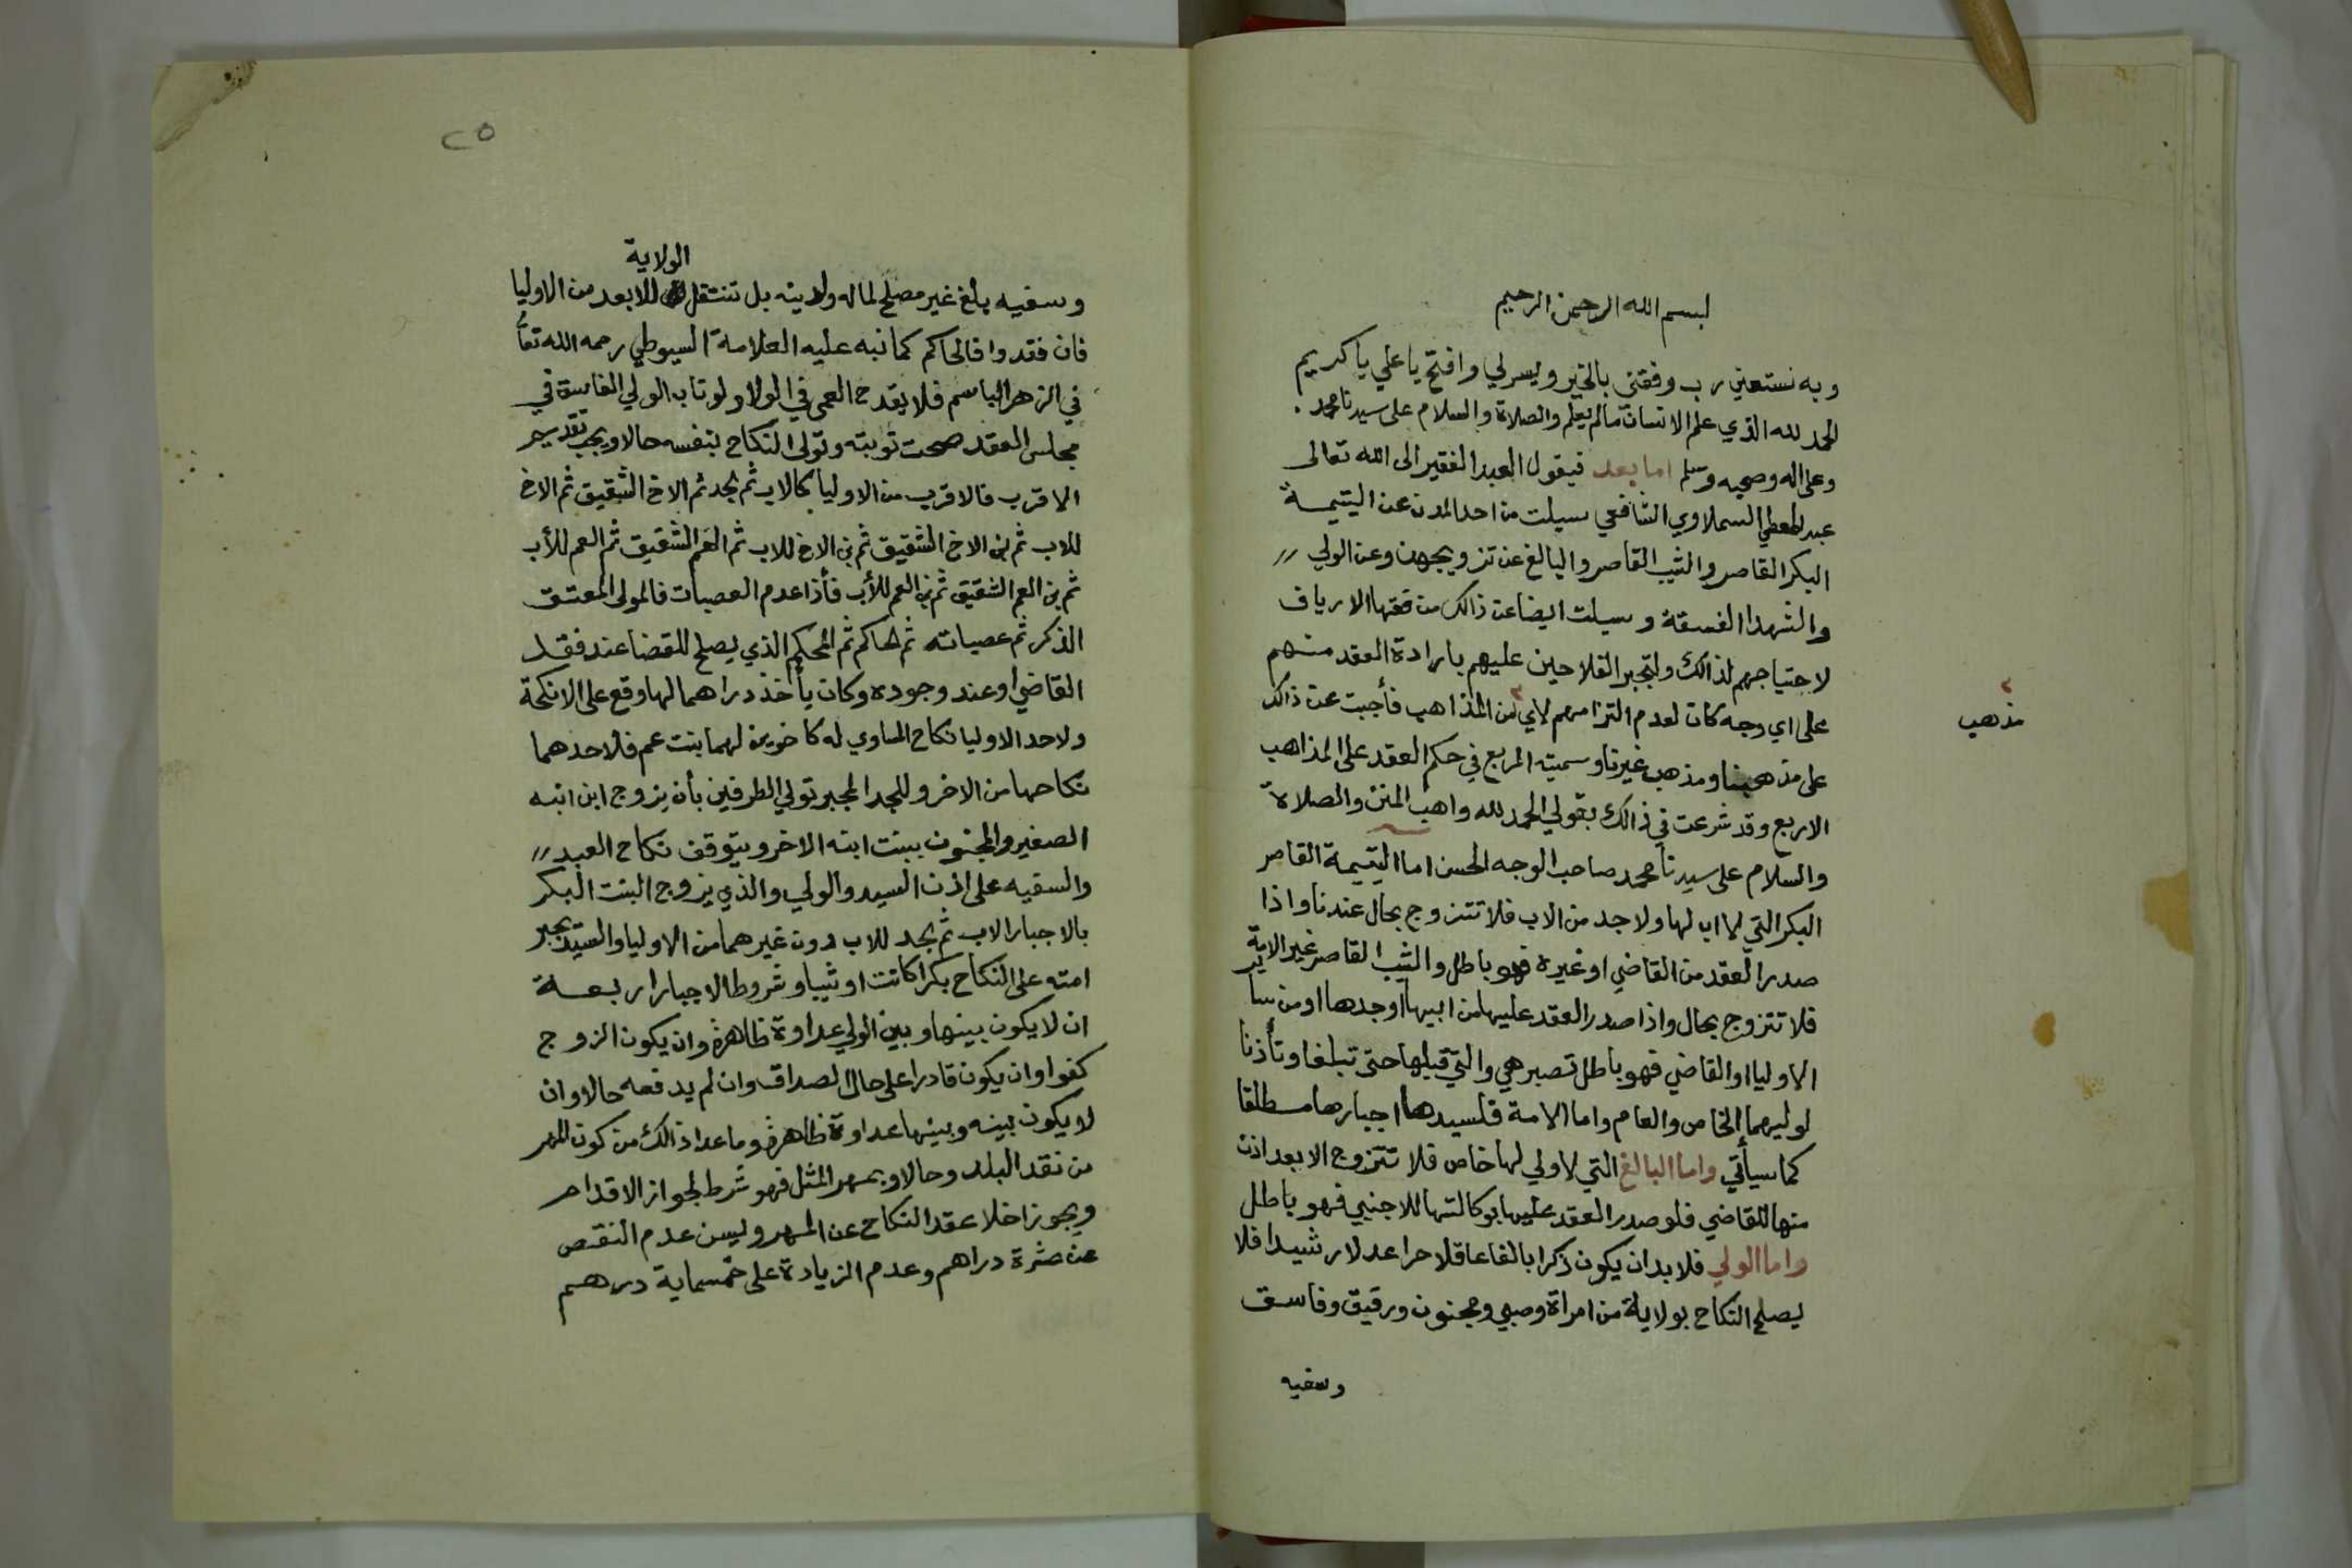 بسم الله الرحمن الرحيم
وبه نستعين رب وفقني بالخير ويسر لي وافتح يا علي يا كريم
الحمد لله الذي علم الانسان مالم يعلم والصلاة والسلام على سيدنا محمد
وعلى اله وصحبه وسلم اما بعد فيقول العبد الفقير الى الله تعالى
عبد المعطي السملاوي الشافعي سيلت من احد المدن عن اليتيمة
البكر القاصر والثيب القاصر والبالغ عن تزويجهن وعن الولي
والشهدا الفسقة وسيلت ايضا عن ذالك من فقها الارياف
لاحتياجهم لذالك ولتجبر الفلاحين عليهم بارادة العقد منهم
على اي وجه كان لعدم التزامهم لاي من المذاهب فأجبت عن ذالك
مذهب
على مذهبنا ومذهب غيرنا وسميته المربع في حكم العقد على المذاهب
الاربع وقد شرعت في ذالك بقولي الحمد لله واهب المنن والصلاة
والسلام على سيدنا محمد صاحب الوجه الحسن اما اليتيمة القاصر
البكر التي لا اب لها ولا جد من الاب فلا تتزوج بحال عندنا واذا
صدر العقد من القاضي او غيره فهو باطل والثيب القاصر غير الامة
فلا تتزوج بحال واذا صدر العقد عليها من ابيها او جدها او من سا
الاوليا او القاضي فهو باطل تصبر هي والتي قبلها حتى تبلغا وتأذنا
لوليهما الخاص والعام واما الامة فلسيدها اجبارها مطلقا
كما سيأتي واما البالغ التي لا ولي لها خاص فلا تتزوج الا بعد اذن
منها للقاضي فلو صدر العقد عليها بوكالتها للاجنبي فهو باطل
واما الولي فلا بد ان يكون ذكرا بالغا عاقلا حرا عدلا رشيدا فلا
يصلح النكاح بولاية من امراة وصبي ومجنون ورقيق وفاسق
وسفيه
٢٥
الولاية
وسفيه بلغ غير مصلح لماله ولدينه بل تنتقل للابعد من الاوليا
فان فقدوا فالحاكم كما نبه عليه العلامة السيوطي رحمه الله تعا
في الزهر الباسم فلا يقدح العمى في الولا ولو تاب الولي الفاسق في
مجلس العقد صحت توبته وتولى النكاح بنفسه حالا ويجب تقديم
الاقرب فالاقرب من الاوليا كالاب ثم الجد ثم الاخ الشقيق ثم الاخ
للاب ثم ابن الاخ الشقيق ثم بن الاخ للاب ثم العم الشقيق ثم العم للأب
ثم بن العم الشقيق ثم بن العم للأب فأذا عدم العصبات فالمولى المعتق
الذكر ثم عصباته ثم الحاكم ثم المحكم الذي يصلح للقضا عند فقد
القاضي او عند وجوده وكان يأخذ دراهما لها وقع على الانكحة
ولاحد الاوليا نكاح المساوي له كاخوين لهما بنت عم فلاحدهما
نكاحها من الاخر وللجد المجبر تولي الطرفين بأن يزوج ابن ابنه
الصغير والمجنون ببنت ابنه الاخر ويتوقف نكاح العبد
والسفيه على اذن السيد والولي والذي يزوج البنت البكر
بالاجبار الاب ثم الجد للاب دون غيرهما من الاوليا والسيد يجبر
امته على النكاح بكرا كانت او ثيبا وشروط الاجبار اربعة
ان لا يكون بينها وبين الولي عداوة ظاهرة وان يكون الزوج
كفوا وان يكون قادرا على حال الصداق وان لم يدفعه حالا وان
لا يكون بينه وبينها عداوة ظاهرة وما عدا ذالك من كون المهر
من نقد البلد وحالا وبمهر المثل فهو شرط لجواز الاقدام
ويجوز اخلا عقد النكاح عن المهر وليسن عدم النقص
عن عشرة دراهم وعدم الزيادة على خمسماية درهم